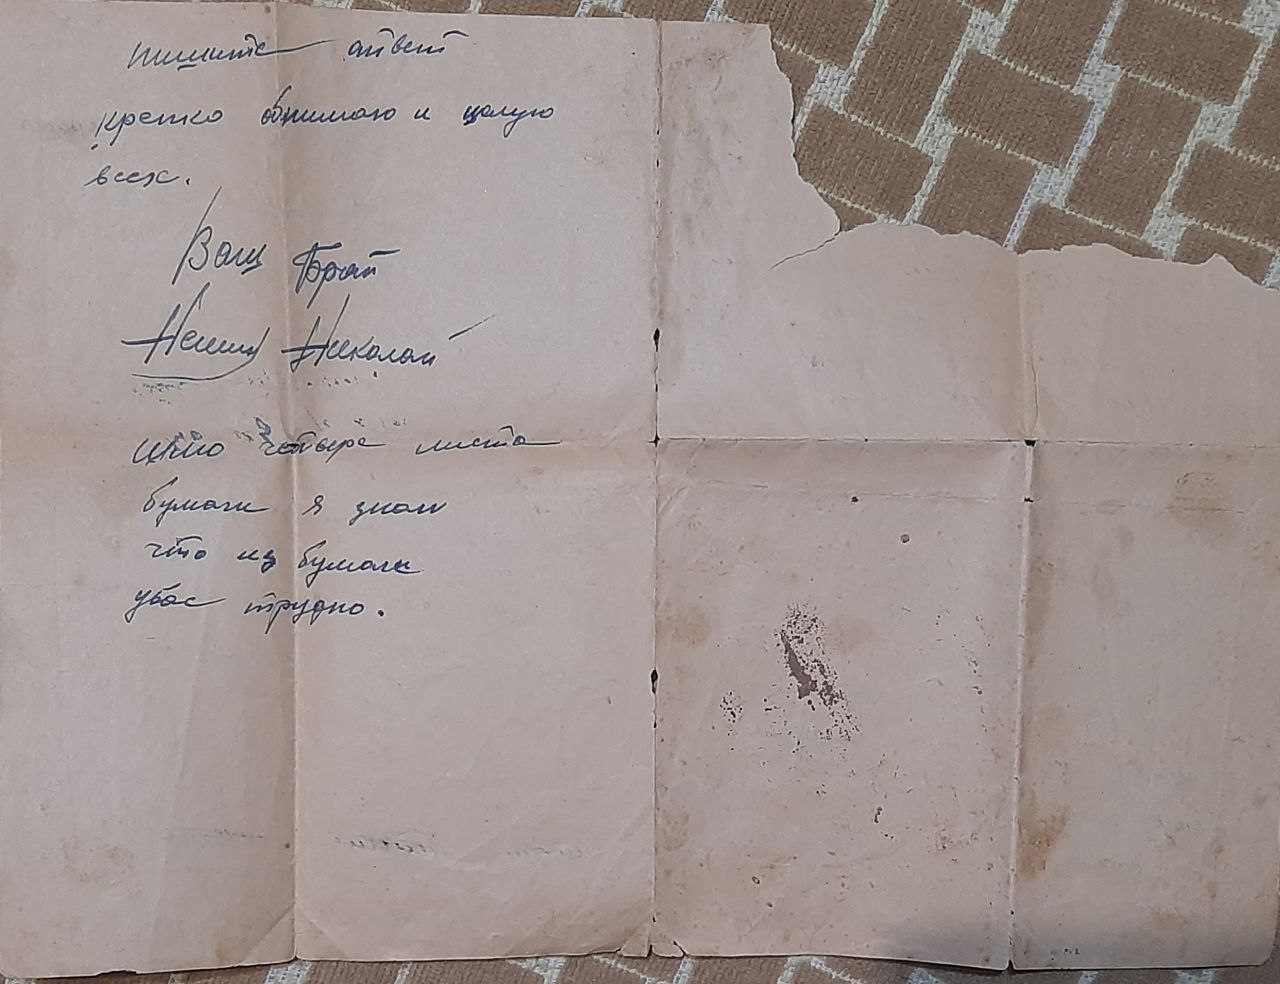 пишите ответ
крепко обнимаю и цалую
всех.
Ваш Брат
Николай
четыре листа
бумаги я знаю
что из бумаги
увас трудно.